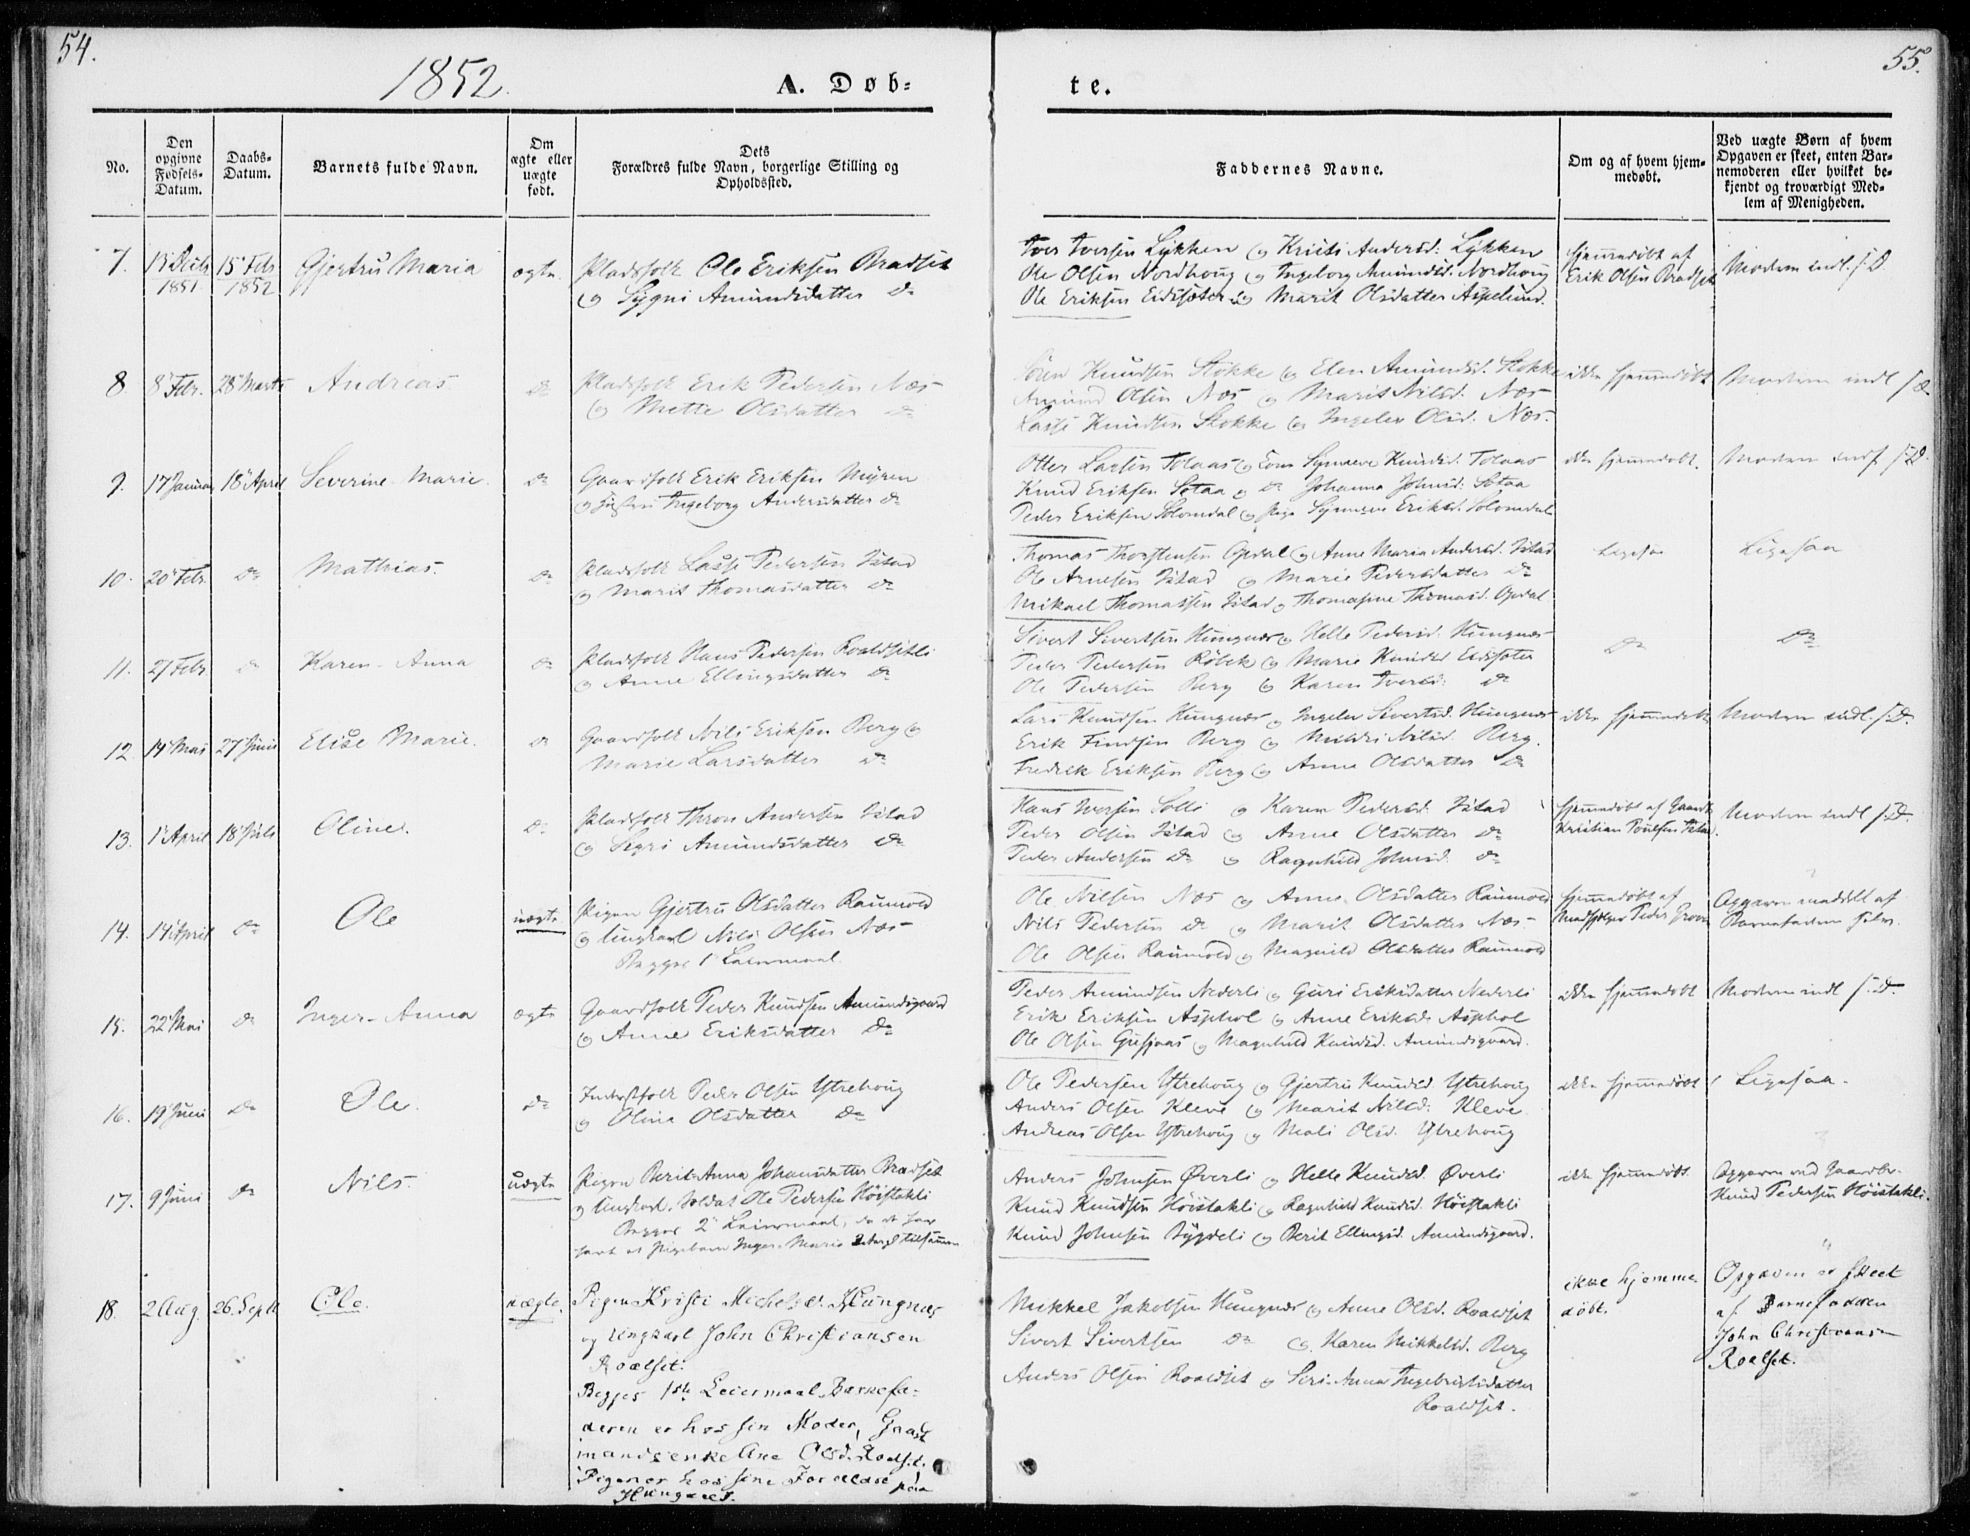 54.
55.
1852.
A. Døb-
te.
No.
Den opgivne Fødsels-Datum.
Daabs-Datum.
Barnets fulde Navn.
Om ægte eller uægte født.
Dets
Forældres fulde Navn, borgerlige Stilling og Opholdssted.
Faddernes Navne.
Om og af hvem hjem-
medøbt.
Ved uægte Børn af hvem
Opgaven er skeet, enten Bar-
nemoderen eller hvilket be-
kjendt og troværdigt Med-
lem af Menigheden.
7. 15 Decbr 1851 15 Febr 1852 Gjertru Maria ægte Pladsfolk Ole Eriksen Bradset
og Sygni Amundsdatter do
Iver Iversen Lykken og Kristi Andersd: Lykken
Ole Olsen Nordhoug og Ingeborg Amundsd. Nordhoug
Ole Eriksen Eidsæter og Marit Olsdatter Aspelund.
hjemmedøbt af
Erik Olsen Bradset
Modern indl. s. D
8 8 Febr. 28 Marts Andreas do Pladsfolk Erik Pedersen Næs
og Mette Olsdatter do
Knudsen Stokke og Elen Amundsd. Stokke
Amund Olsen Næs og Marit Nilsd. Næs
Lasse Knudsen Stokke og Ingeler Olsd. Næs.
ikke hjemmedøbt
Modern indl s D.
9. 17 Januar 18 April Severine Marie. do Gaardfolk Erik Eriksen Myren
og Ingeborg Andersdatter do
Otter Larsen Tolaas og Kone Synneve Knudsd. Tolaas
Knud Eriksen Sotaa og do Johanna Johnsd: Sotaa
Peder Eriksen Solomdal og Pige Synneve Eriksd. Solomdal
ikke hjemmedøbt.
Modern indl s D.
10. 20 Febr. do Mathias. do Pladsfolk Lasse Pedersen Istad
og Marit Thomasdatter do
Thomas Thorstensen Opdal og Anne Maria Andersd. Istad
Ole Arnesen Istad og Marie Pedersdatter do
Mikael Thomassen Istad og Thomasine Thomasd. Opdal
Ligesaa
Ligesaa
11. 27 Febr do Karen Anna do Pladsfolk Hans Pedersen Roaldsetli
og Anne Ellingsdatter do
Sivert Sivertsen Hungnæs og Helle Pedersd. Hungnæs
Peder Pedersen Røbek og Marie Knudsd Eidsæter
Ole Pedersen Berg og Karen Iversd. do
do
do
12 14 Mai 27 Juni Elise Marie. do Gaardfolk Nils Eriksen Berg og
Marie Larsdatter do
Lars Knudsen Hungnæs og Ingeler Sivertsd. Hungnæs
Erik Findsen Berg og Mildri Nilsd. Berg.
Fredrik Eriksen Berg og Anne Olsdatter do
ikke hjemmedøbt
Modern indl. s. D.
13. 1 April 18 Juli Oline. do Pladsfolk Thron Andersen Istad
og Segri Amundsdatter do
Hans Iversen Solli og Karen Pedersd. Istad
Peder Olsen Istad og Anne Olsdatter do
Peder Andersen do og Ragnhild Johnsd. do
hjemmedøbt af Gaardm.
Kristian Poulsen Istad.
Modern indl s. D.
14. 14 April do Ole uægte Pigen Gjertru Olsdatter Raunvold
og Ungkarl Nils Olsen Næs
Begges 1 Leiermaal.
Ole Nilsen Næs og Anne Olsdatter Raunvold
Nils Pedersen do og Marit Olsdatter Næs.
Ole Olsen Raunvold og Magnild Olsdatter Raunvold
hjemmedøbt af
Medhjelper Peder Groven
Opgaven meddelt af
Barnefadern selv.
15. 22 Mai do Inger-Anna ægte Gaardfolk Peder Knudsen Amundsgaard
og Anne Eriksdatter do
Peder Amundsen Nederli og Guri Eriksdatter Nederli
Erik Eriksen Asphol og Anne Eriksd. Asphol
Ole Olsen Gusjaas og Magnhild Knudsd. Amundsgaard.
ikke hjemmedøbt
Modern indl s. D.
16. 19 Juni do Ole. do Inderstfolk Peder Olsen Ytrehoug
og Oline Olsdatter do
Ole Pedersen Ytrehoug og Gjertru Knudsd. Ytrehoug
Anders Olsen Kleve og Marit Nilsd: Kleve
Andreas Olsen Ytrehoug og Mali Olsd. Ytrehoug
ikke hjemmedøbt
Ligesaa.
17. 9 Juni do Nils. uægte Pigen Berit Anna Johansdatter Bradset
og Ungkarl. Soldat Ole Pedersen Høistakli
Begges 2 Leiermaal, da de har
havt et Pigebarn Inger Marie tilsammen
Anders Johnsen Øverli og Helle Knudsd. Øverli
Knud Knudsen Høistakli og Ragnhild Knudsd. Høistakli
Knud Johnsen Bygdeli og Berit Ellingsd. Amundsgaard.
ikke hjemmedøbt
Opgaven ved Gaardbr.
Knud Pedersen Høistakli.
18. 2 Aug. 26. Septb Ole. uægte. Pigen Kristi Michelsd. Hungnæs
og Ungkarl John Christiansen
Roalset.
Begges 1ste Leiermaal. Barnefa-
deren er hos sin Moder, Gaard
mandsenke Ane Olsd. Roalset.
Pigen er hos sine Forældre paa
Hungnæs.
Mikkel Jakobsen Hungnæs og Anne Olsd. Roaldset
Sivert Sivertsen do og Karen Mikkelsd. Berg
Anders Olsen Roaldset og Seri Anna Ingebrigtsdatter
Roaldset.
ikke hjemme
døbt.
Opgaven er skeet
af Barnefaderen
John Christiansen
Roalset.